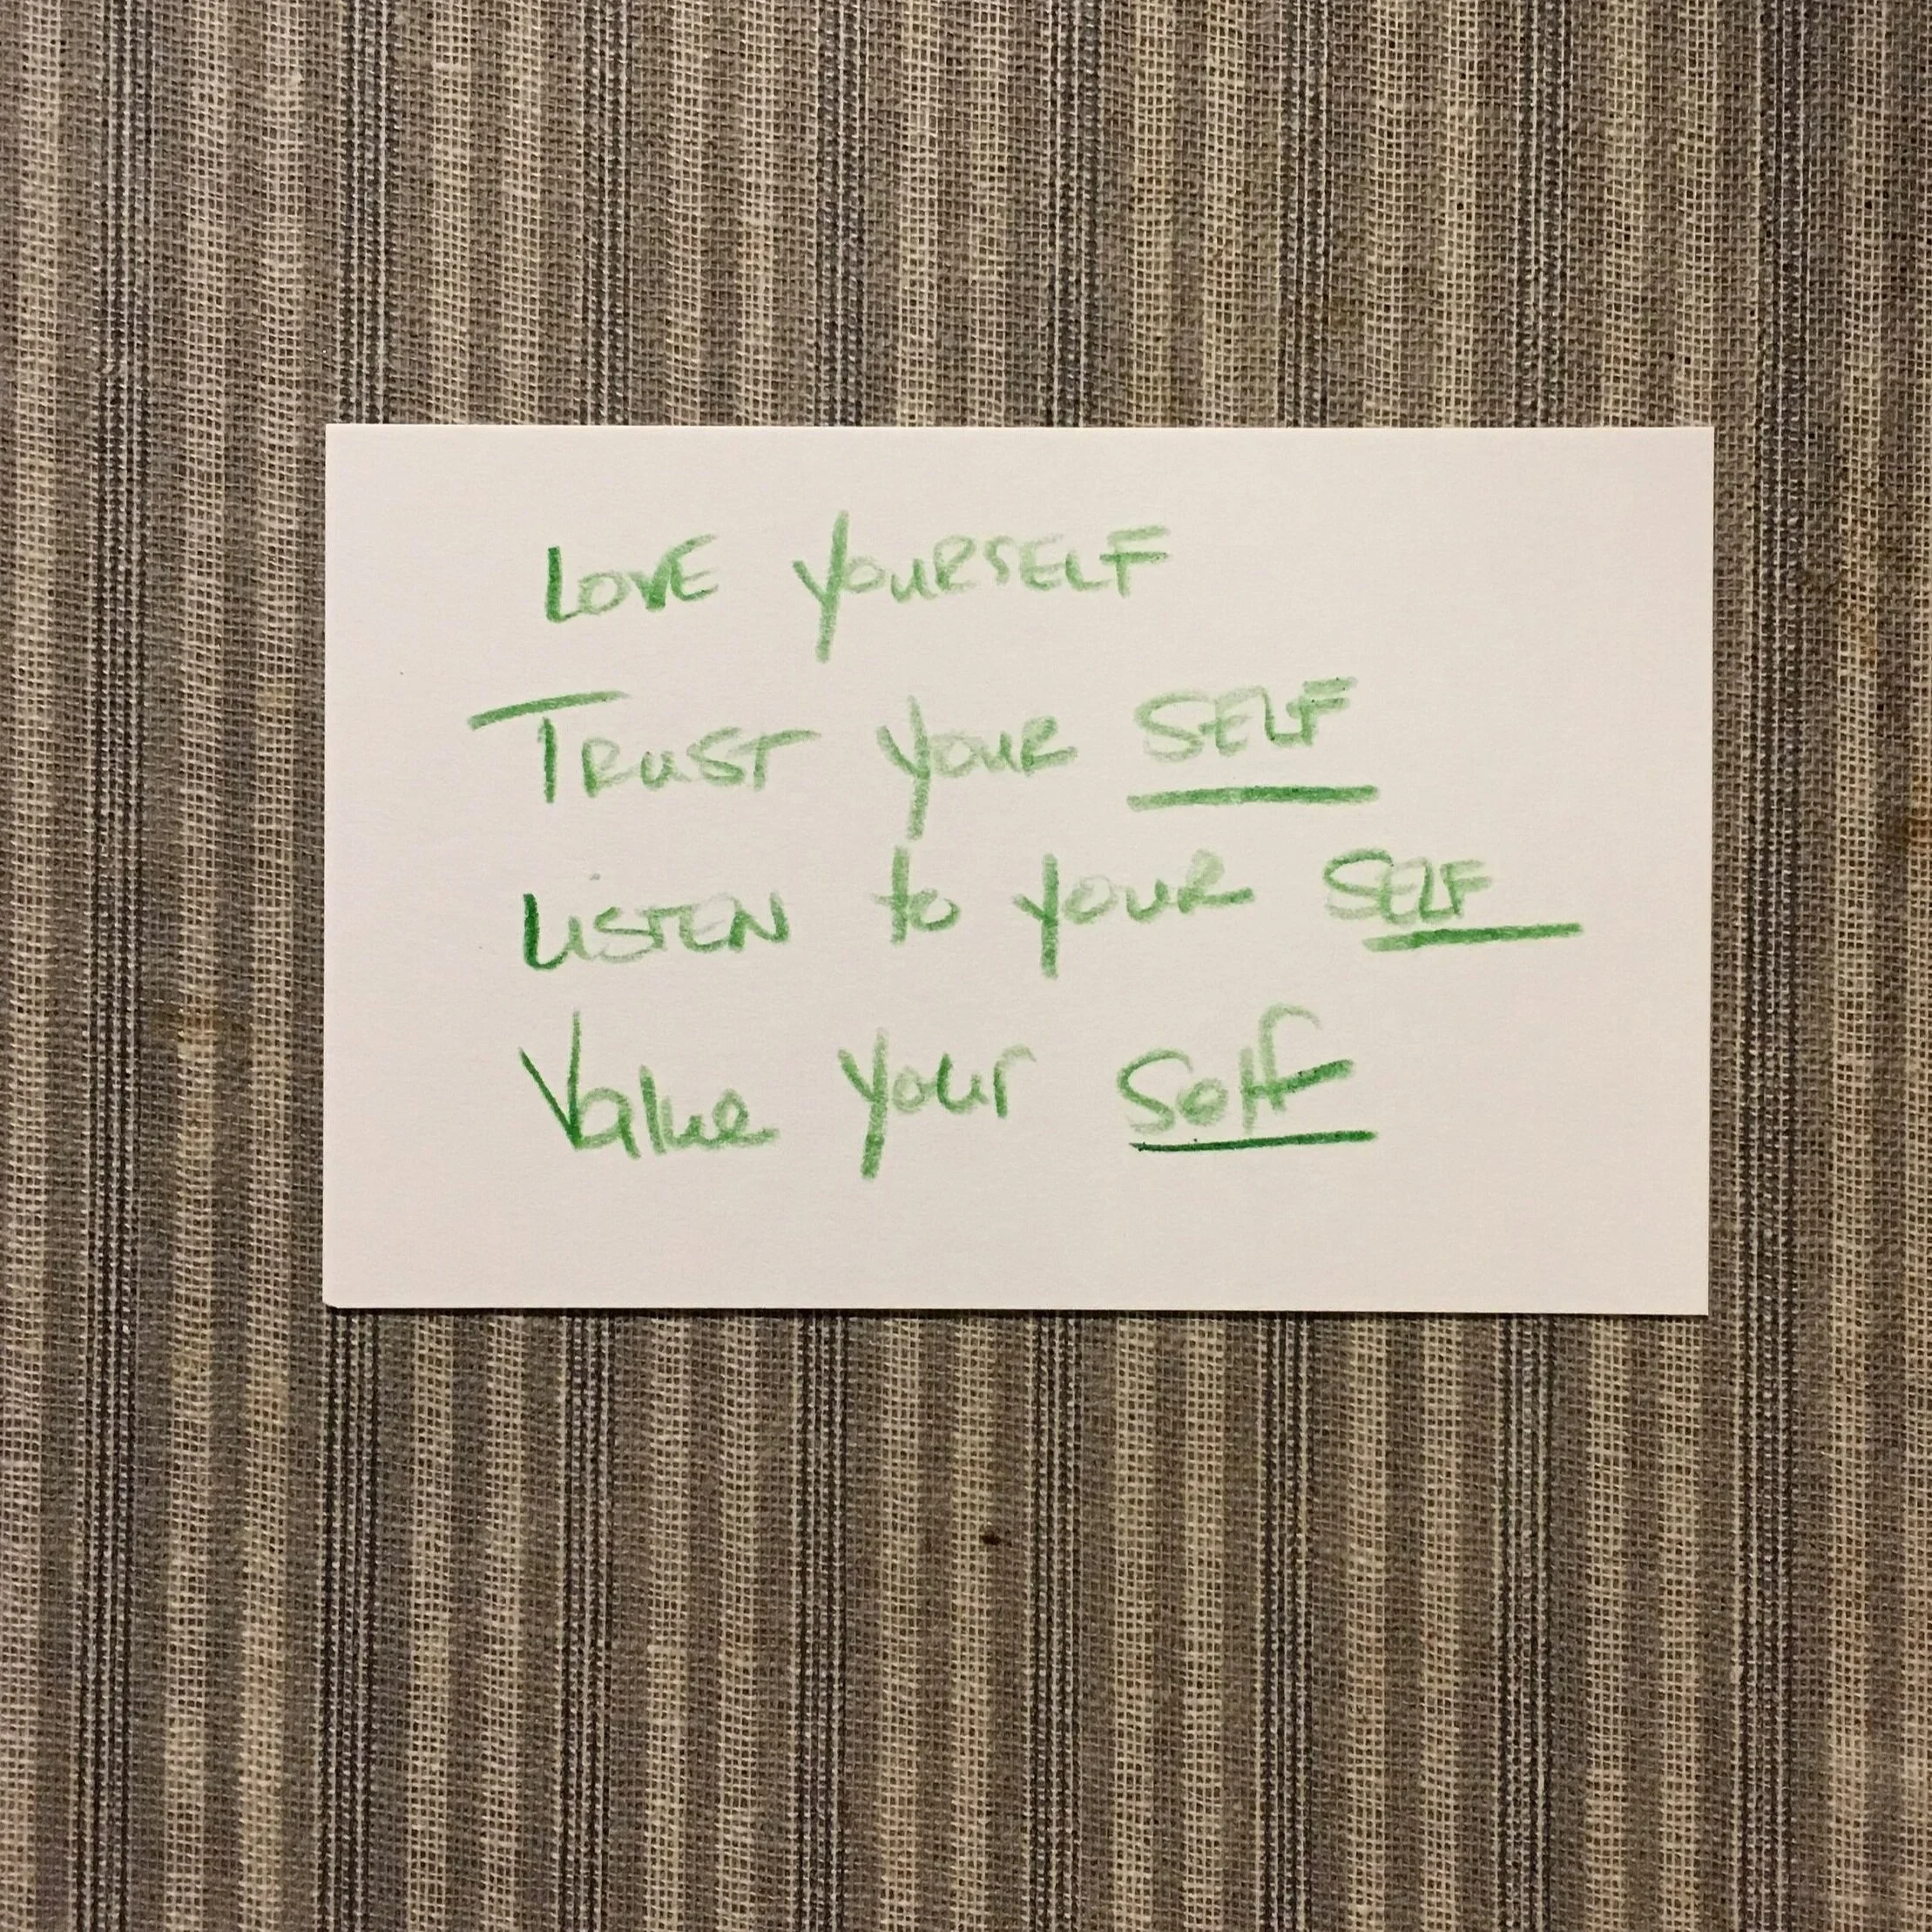 LOVE YOURSELF
TRUST YOUR SELF
LISTEN to YOUR SELF
Value Your Self